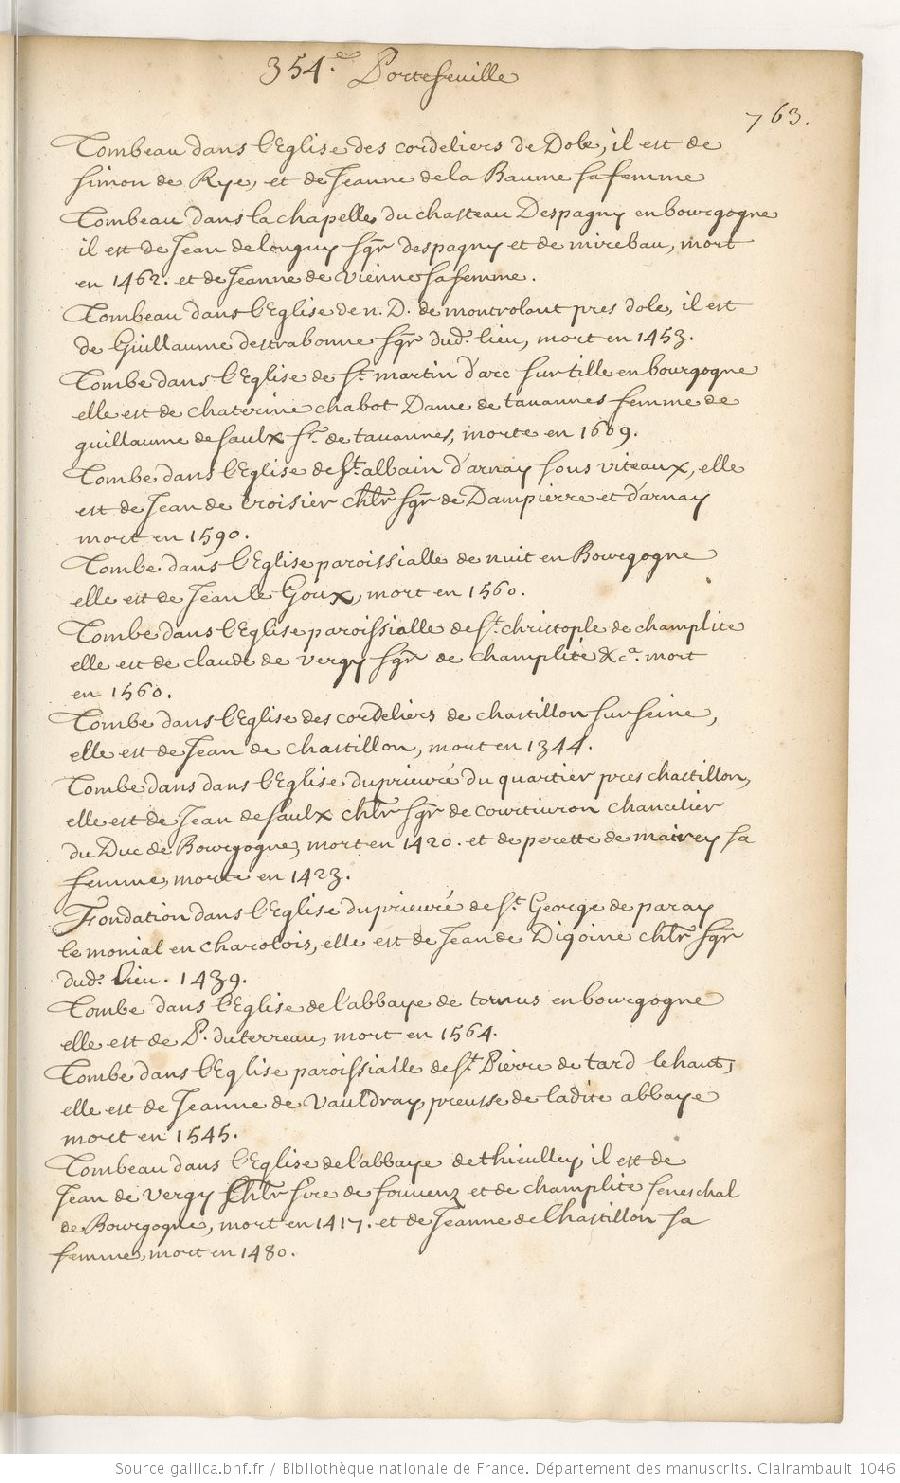 354.e Portefeuille
763.
Tombeau dans l'Eglise des cordeliers de Dole, il est de
simon de Rye, et de Jeanne de la Baume sa femme
Tombeau dans la chapelle du chasteau Despagny en bourgogne
il est de Jean de longuy sgr despagny et de mirebau, mort
en 1462. et de Jeanne de Vienne sa femme.
Tombeau dans l'Eglise de n. D. de montrolant pres dole, il est
de Guillaume destrabonne sgr dud. lieu, mort en 1453.
Tombe dans l'Eglise de St. martin d'arc sur tille en bourgogne
elle est de chaterine chabot Dame de tavannes femme de
guillaume de saulx sr. de tavannes, morte en 1609.
Tombe dans l'Eglise de St. albain d'arnay sous viteaux, elle
est de Jean de Croisier chlr sgr de Dampierre et d'arnay
mort en 1590.
Tombe dans l'Eglise paroissialle de nuit en Bourgogne
elle est de Jean le Goux, mort en 1560.
Tombe dans l'Eglise paroissialle de St. christople de champlite
elle est de claude de vergy sgr de champlite &ca. mort
en 1560.
Tombe dans l'Eglise des cordeliers de chastillon sur seine,
elle est de Jean de chastillon, mort en 1344.
Tombe dans dans l'Eglise du prieuré du quartier pres chastillon,
elle est de Jean de saulx chlr sgr de courtiuron chancelier
du Duc de Bourgogne, mort en 1420. et de perette de mairey sa
femme, morte en 1423.
Fondation dans l'Eglise du prieuré de St. George de paray
le monial en charolois, elle est de Jean de Digoine chlr sgr
dud. lieu. 1439.
Tombe dans l'Eglise de l'abbaye de tornus en bourgogne
elle est de P. du terreau, mort en 1564.
Tombe dans l'Eglise paroissialle de St. Pierre de tard le haut,
elle est de Jeanne de Vauldray preusse de ladite abbaye
mort en 1545.
Tombeau dans l'Eglise de l'abbaye de thieulley, il est de
Jean de vergy chlr sire de fouuenz et de champlite seneschal
de Bourgogne, mort en 1417. et de Jeanne de Chastillon sa
femme, mort en 1480.
Source gallica.bnf.fr / Bibliothèque nationale de France. Département des manuscrits. Clairambault 1046